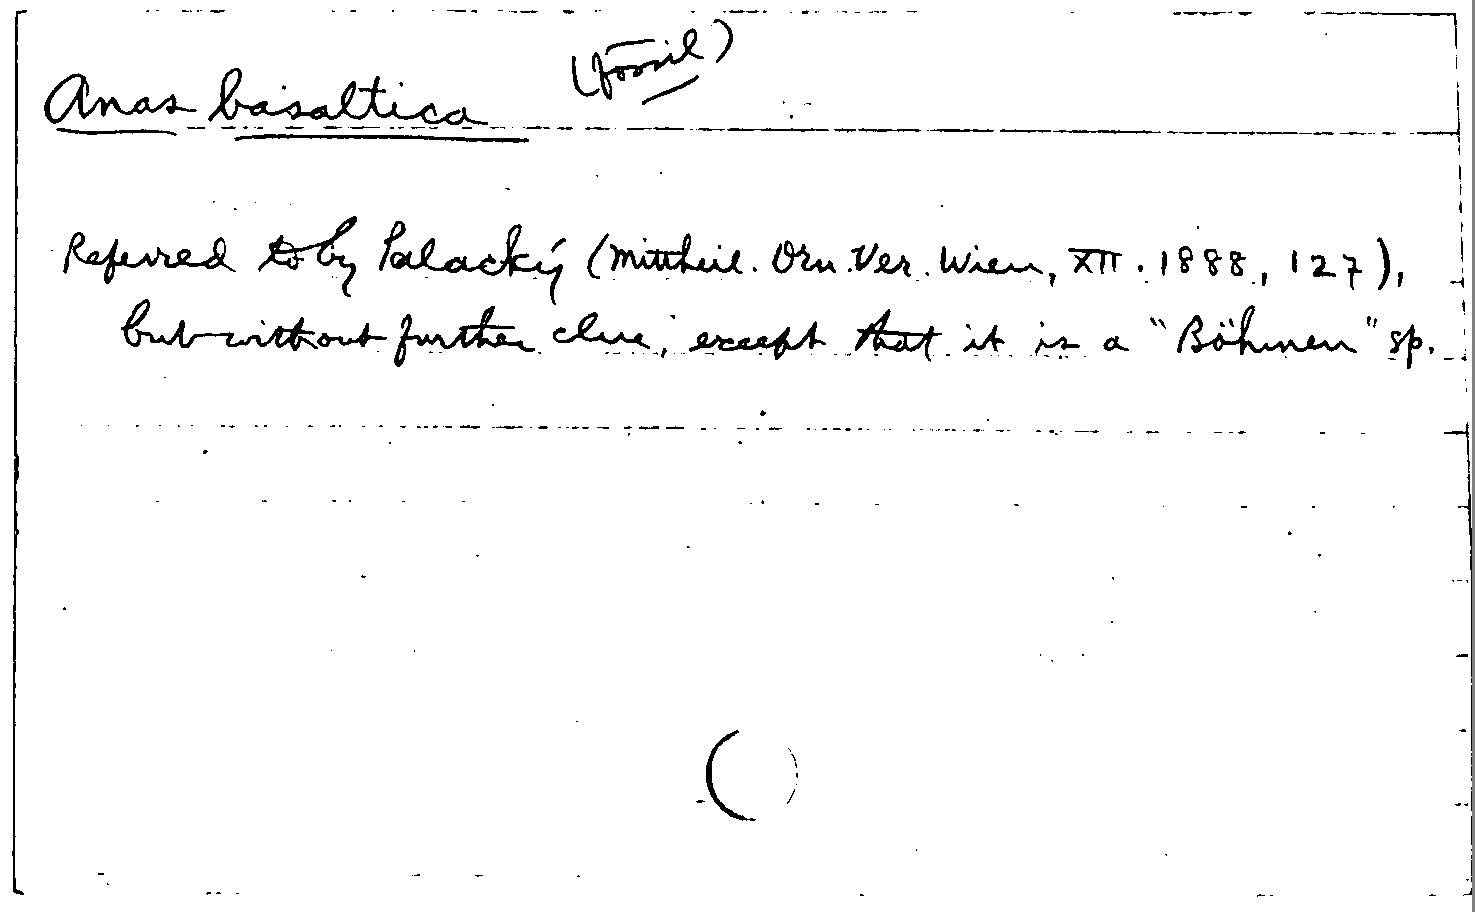 Anas basaltica (fossil)
Referred to by Palacký (Mittheil. Orn. Ver. Wien, XII. 1888, 127),
but without further clue, except that it is a "Böhmen" sp.